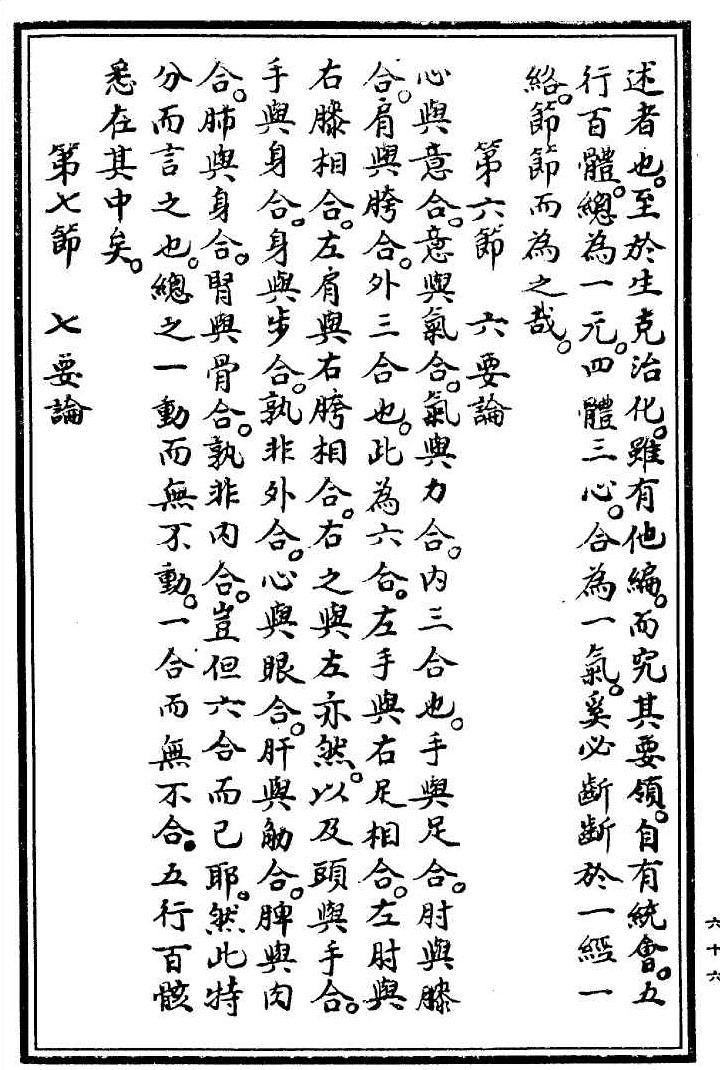 述者也。至於生克治化。雖有他編。而究其要領。自有統會。五
行百體。總為一元。四體三心。合為一氣。奚必斷斷於一經一
絡。節節而為之哉。
第六節 六要論
心與意合。意與氣合。氣與力合。內三合也。手與足合。肘與膝
合。肩與胯合。外三合也。此為六合。左手與右足相合。左肘與
右膝相合。左肩與右胯相合。右之與左亦然。以及頭與手合。
手與身合。身與步合。孰非外合。心與眼合。肝與觔合。脾與肉
合。肺與身合。腎與骨合。孰非內合。豈但六合而已耶。然此特
分而言之也。總之一動而無不動。一合而無不合。五行百骸
悉在其中矣。
第七節 七要論
六十六